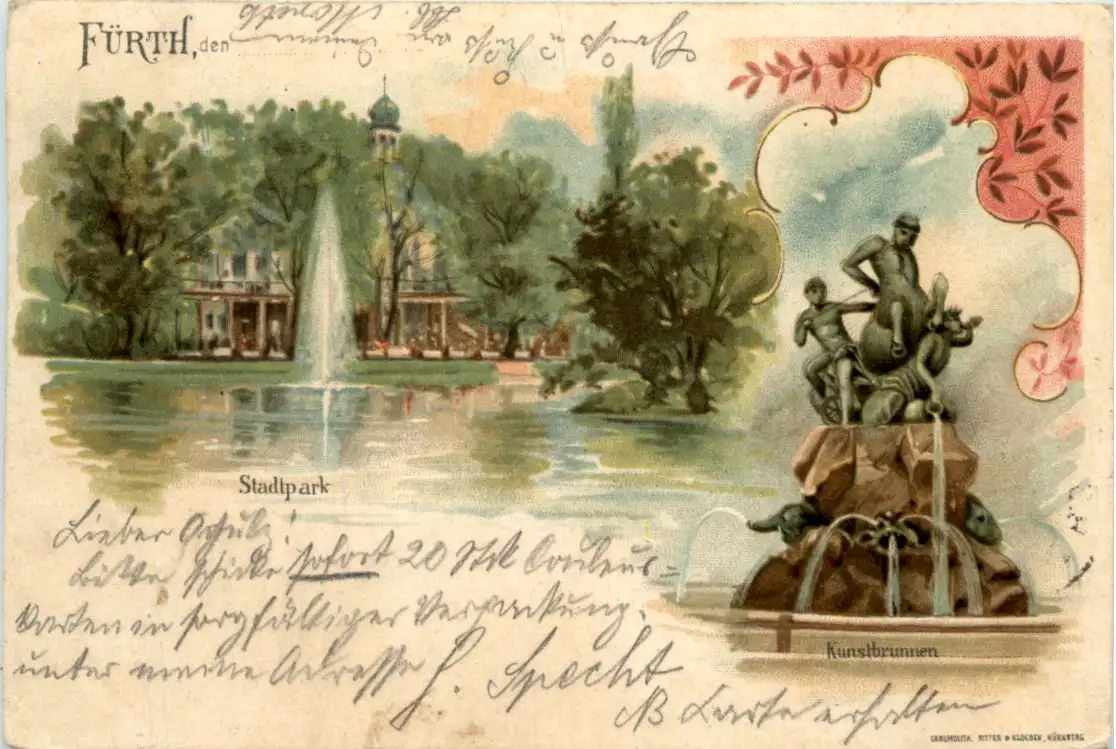 FÜRTH, den
Stadtpark
Kunstbrunnen
Lieber Schulz!
Bitte schicke sofort 20 Stck Couleur-
karten in sorgfältiger Verpackung
unter meine Adresse H. Specht
NB Karte erhalten
CHROMOLITH. RITTER & KLOEDEN, NÜRNBERG